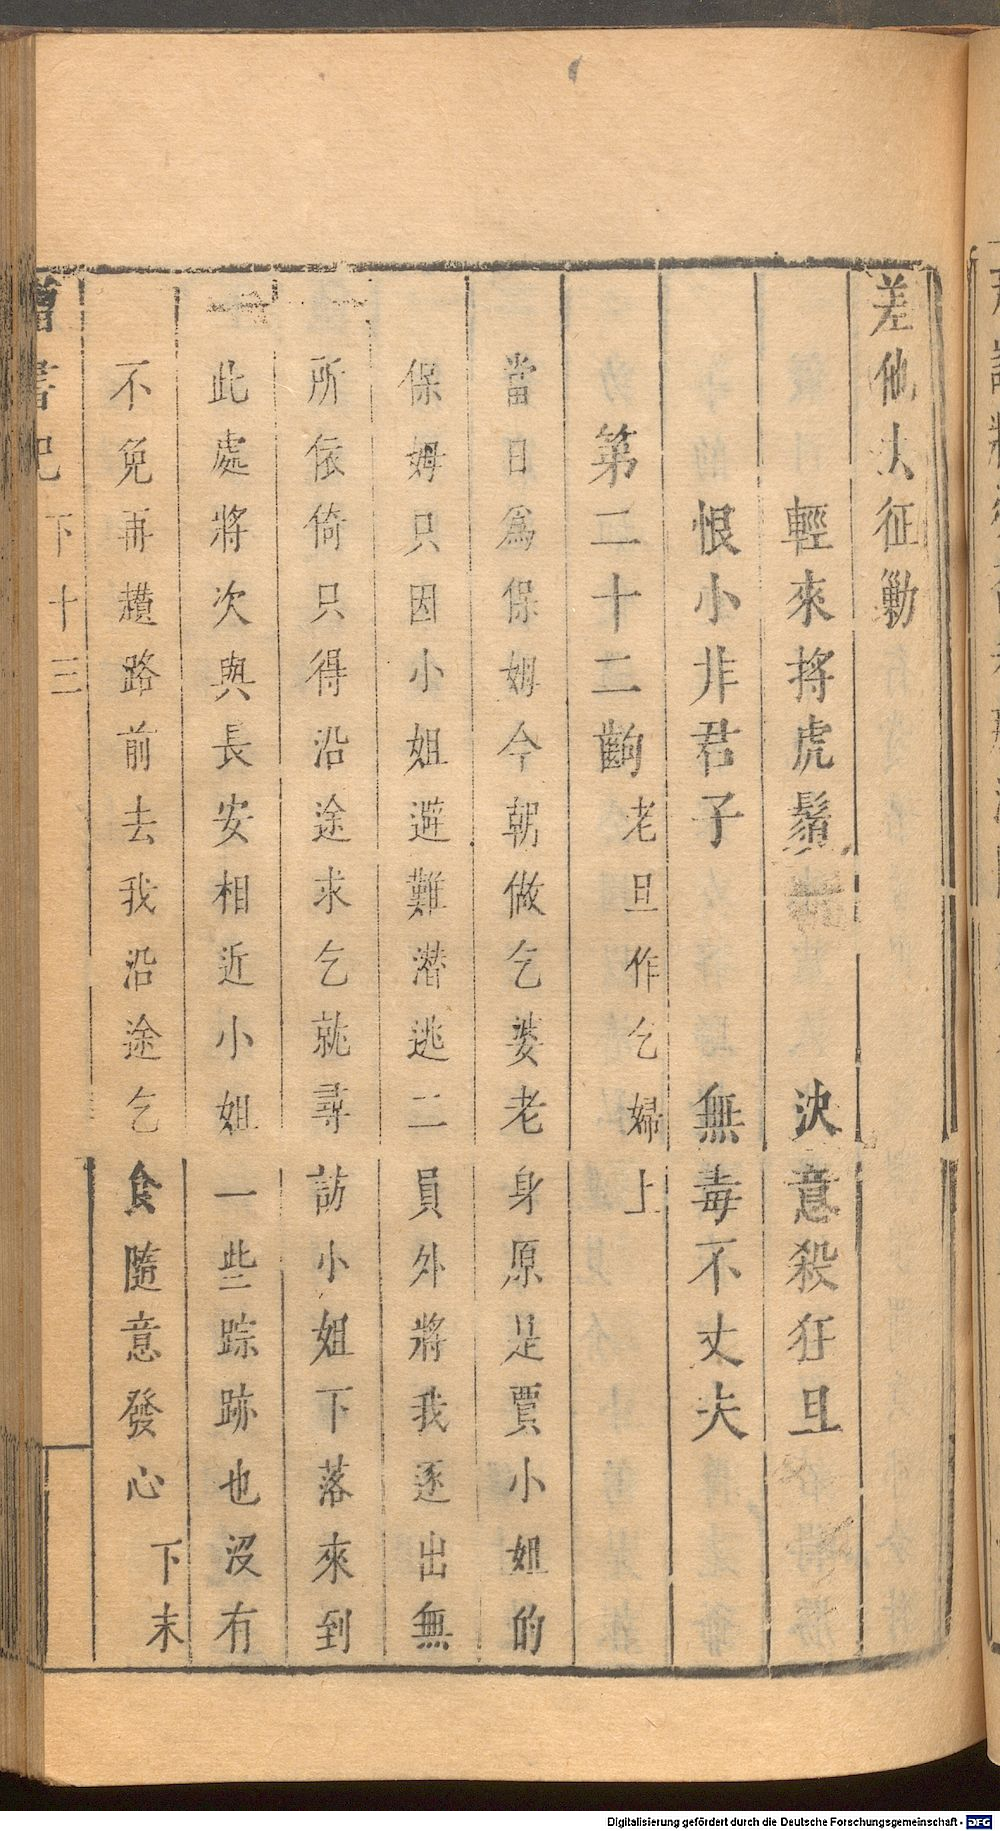 差他去征勦
輕來捋虎鬚　決意殺狂旦
恨小非君子　無毒不丈夫
第二十二齣 老旦作乞婦上
當日爲保姆今朝做乞婆老身原是賈小姐的
保姆只因小姐避難潛逃二員外將我逐出無
所依倚只得沿途求乞就尋訪小姐下落來到
此處將次與長安相近小姐一些踪跡也沒有
不免再趲路前去我沿途乞食隨意發心 下末
書記 下 十三
Digitalisierung gefördert durch die Deutsche Forschungsgemeinschaft - DFG